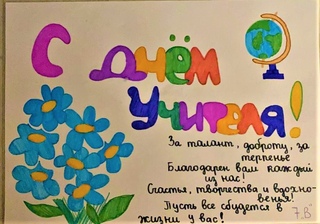 С днём
Учителя!
За талант, доброту, за
терпенье
Благодарен вам каждый
из нас!
Счастья, творчества и вдохно-
венья!
Пусть все сбудется в
жизни у вас!
7.В